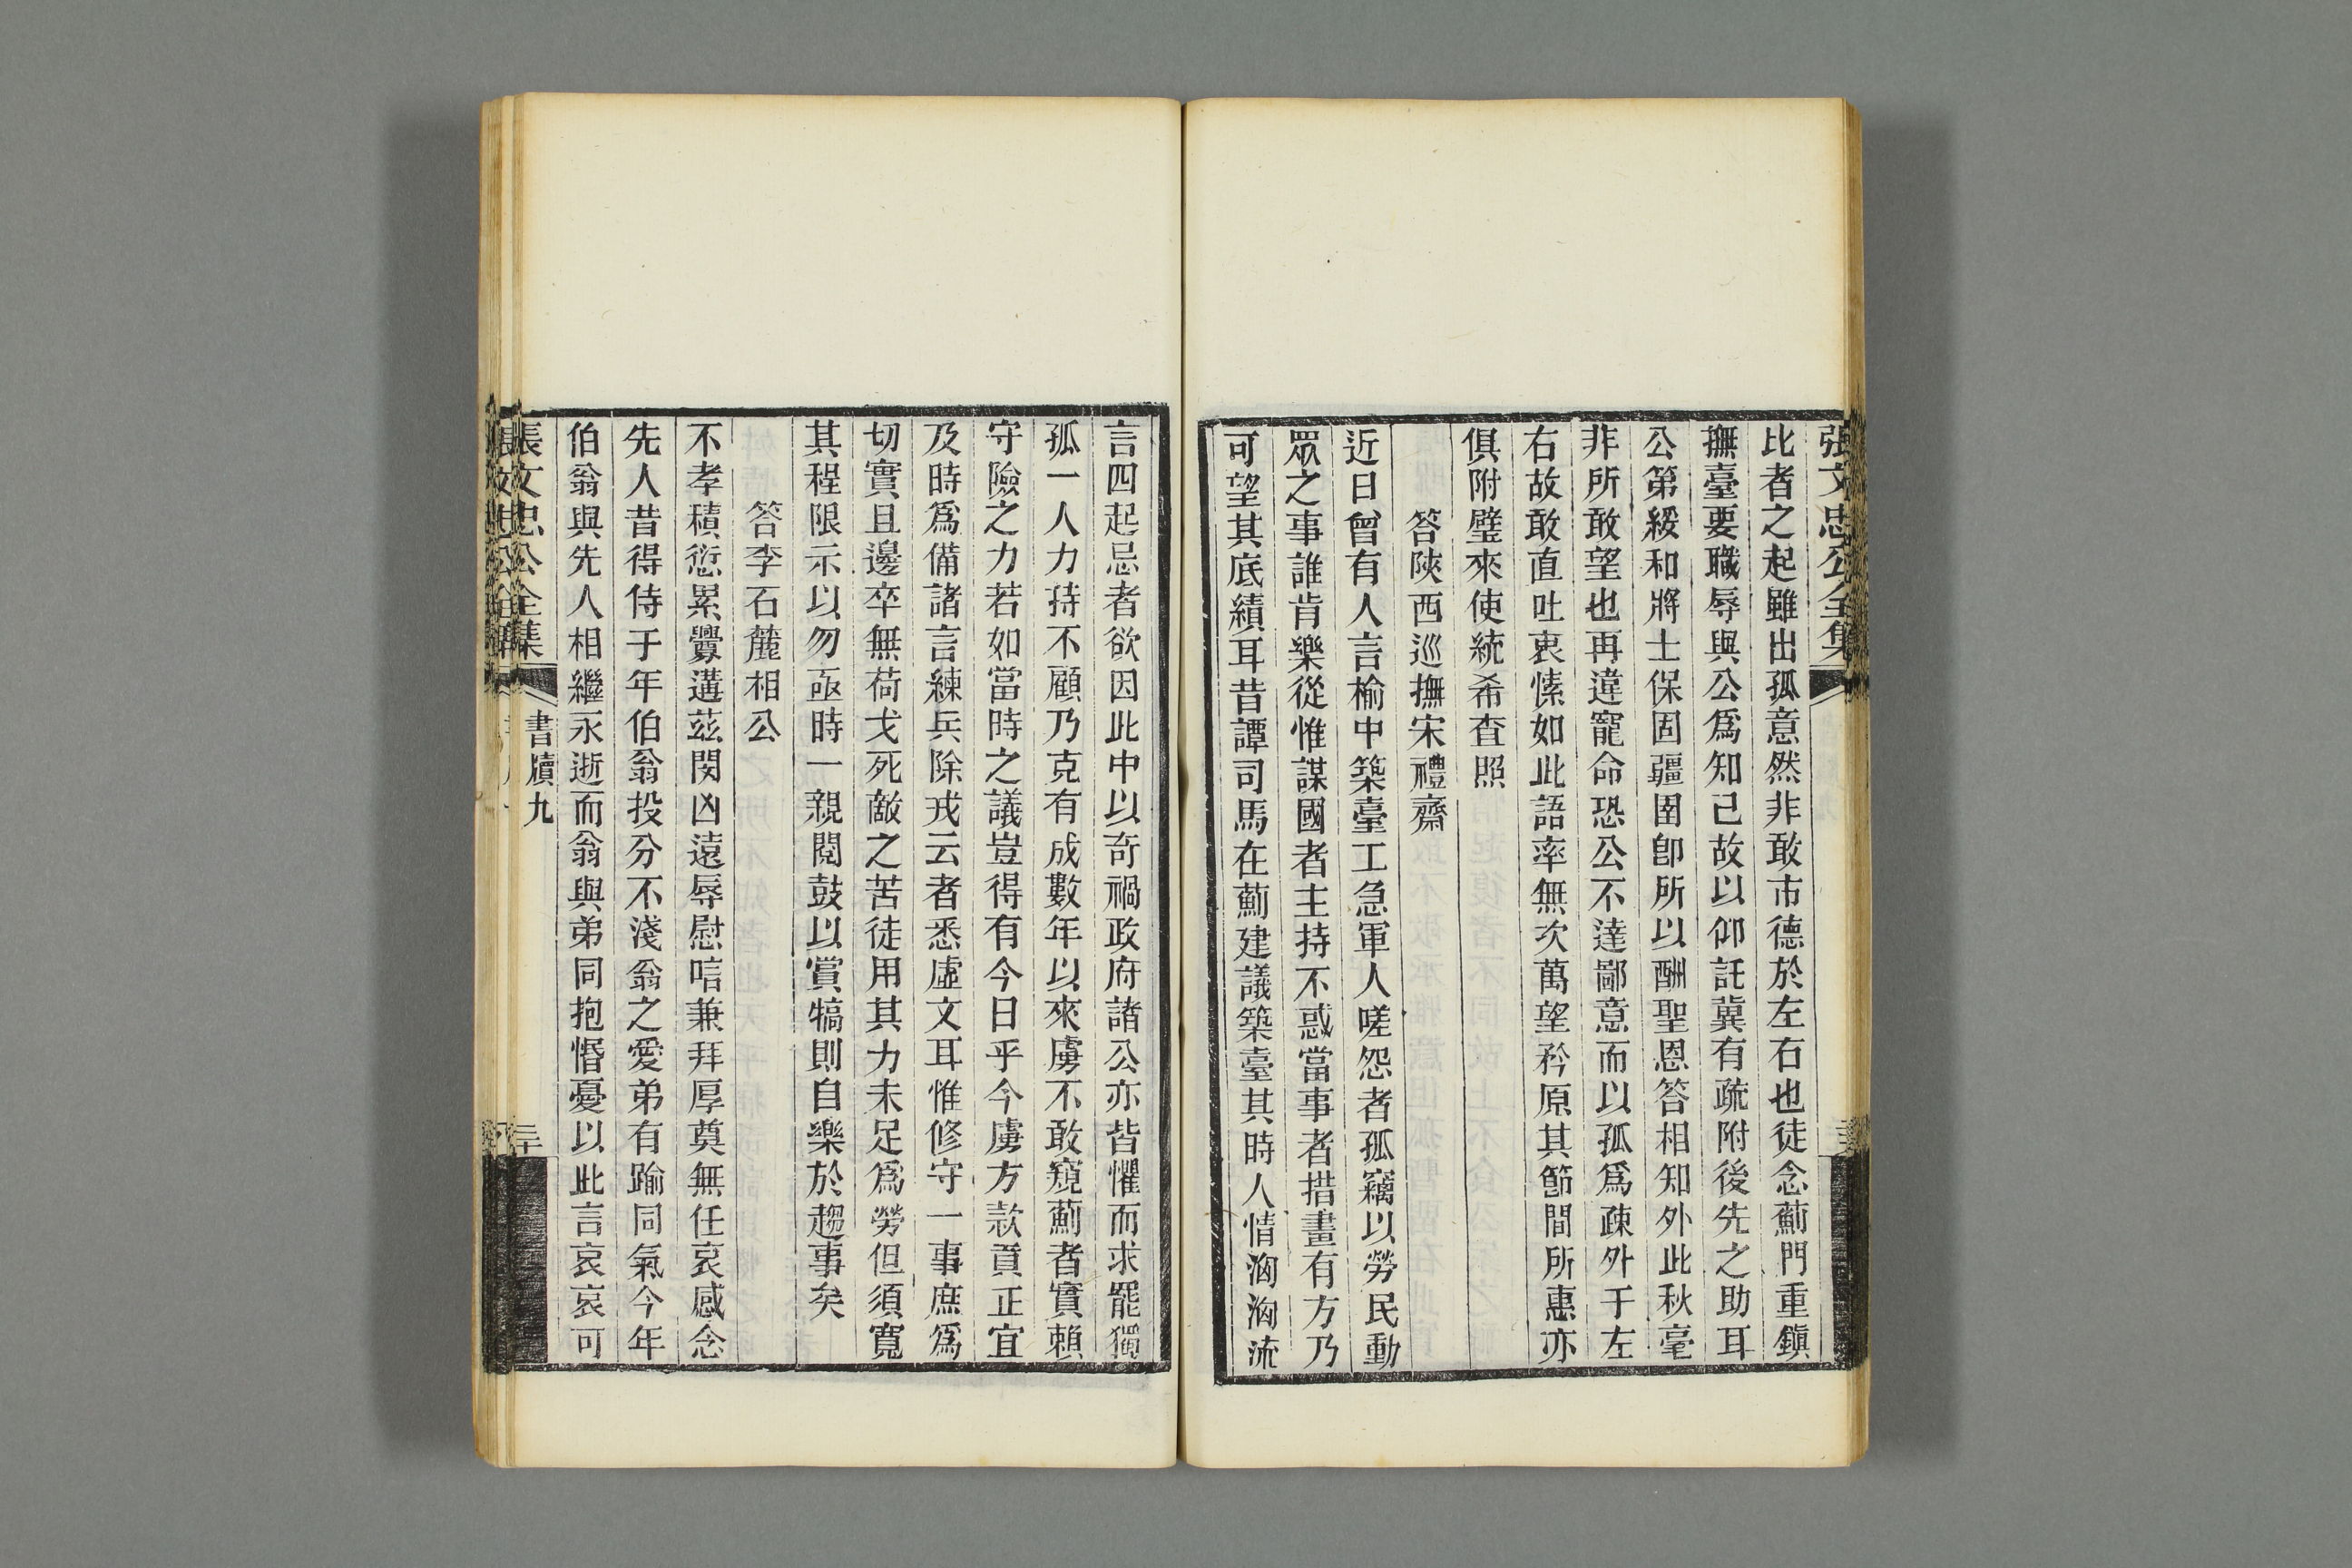 張文忠公全集
比者之起雖出孤意然非敢市德於左右也徒念薊門重鎮
撫臺要職辱與公爲知己故以仰託冀有疏附後先之助耳
公第緩和將士保固疆圉卽所以酬聖恩答相知外此秋毫
非所敢望也再違寵命恐公不達鄙意而以孤爲疎外于左
右故敢直吐衷愫如此語率無次萬望矜原其節間所惠亦
俱附璧來使統希查照
答陝西巡撫宋禮齋
近日曾有人言榆中築臺工急軍人嗟怨者孤竊以勞民動
眾之事誰肯樂從惟謀國者主持不惑當事者措畫有方乃
可望其底績耳昔譚司馬在薊建議築臺其時人情洶洶流
言四起忌者欲因此中以奇禍政府諸公亦皆懼而求罷獨
孤一人力持不顧乃克有成數年以來虜不敢窺薊者實賴
守險之力若如當時之議豈得有今日乎今虜方款貢正宜
及時爲備諸言練兵除戎云者悉虛文耳惟修守一事庶爲
切實且邊卒無荷戈死敵之苦徒用其力未足爲勞但須寬
其程限示以勿亟時一親閱鼓以賞犒則自樂於趨事矣
答李石麓相公
不孝積愆累釁遘茲閔凶遠辱慰唁兼拜厚奠無任哀感念
先人昔得侍于年伯翁投分不淺翁之愛弟有踰同氣今年
伯翁與先人相繼永逝而翁與弟同抱惛憂以此言哀哀可
張文忠公全集
書牘九
二十